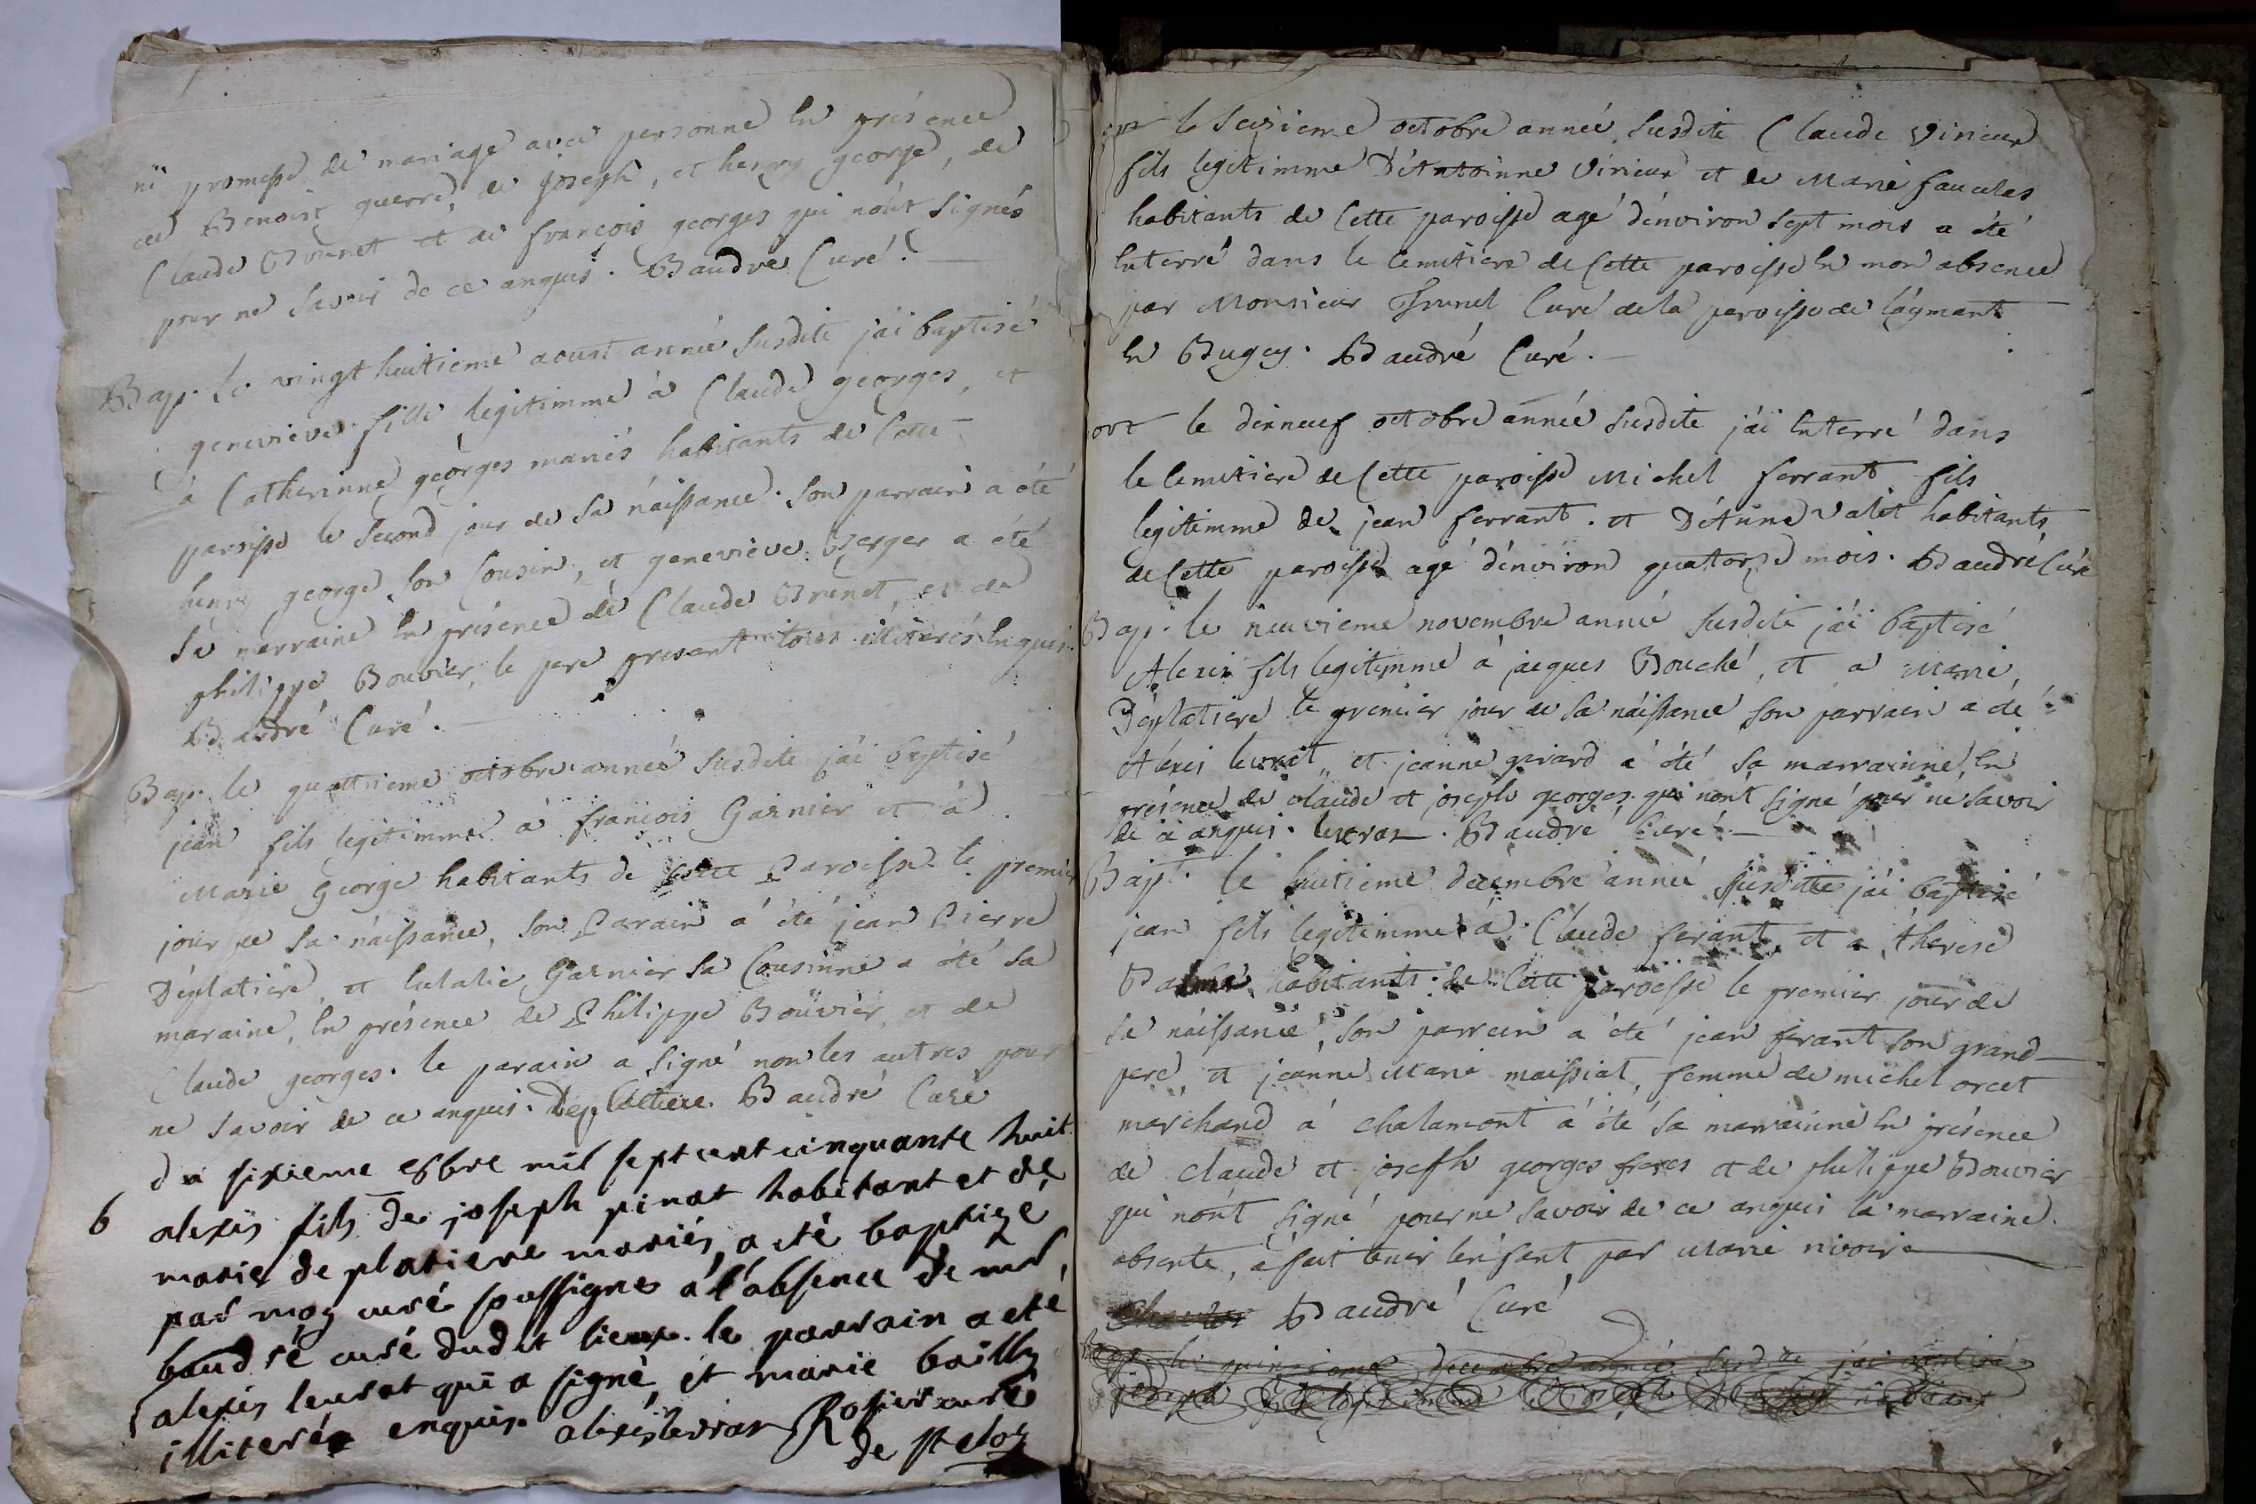 ni promesse de mariage avec personne en présence
de Benoist guerre, de joseph, et henry george, de
Claude Brunet et de françois georges qui n'ont signés
pour ne savoir de ce anquis. Baudré Curé.
Bap. Le vingt huitieme aoust année susdite j'ai baptisé
genevieve fille legitimme à Claude georges, et
à Catherinne georges mariés habitants de Cette
paroisse le second jour de sa náissance. son parrain a été
henry george son Cousin, et genevieve Berger a été
sa marraine en présence de Claude Brunet, et de
philippe Bouvier, le pere present tous illiterés enquis.
Baudré Curé.
Bap. le quattrieme octobre année susdite j'ai baptisé
jean fils legitimme à françois Garnier et à
Marie George habitants de cette Paroisse le premier
jour de sa náissance, son Parain a été jean Pierre
Déplatiere, et Eulalie Garnier sa Cousinne a été sa
maraine, en présence de Philippe Bouvier, et de
Claude georges. le parain a signé non les autres pour
ne savoir de ce anquis. Deplattiere. Baudré Curé
du sixieme 8bre mil sept cent cinquante huit
6 alexis fils de joseph pinat habitant et de
marie de platiere mariés, a eté baptizé
par moy curé soussigné a l'absence de mr
baudré curé dudit lieux. le parrain a eté
alexis leurat qui a signé, et marie bailly
illiterée enquise alexis levrar Rosier curé
de st eloy
le seizieme octobre année susdite Claude Virieux
fils legitimme D'Antoinne Virieux et de Marie faucelas
habitants de Cette paroisse agé d'environ sept mois a été
Enterré dans le Cemitiere de Cette paroisse en mon absence
par Monsieur Brunel Curé de la paroisse de
en Bugey. Baudré Curé.
mort le dixneuf octobre année susdite j'ai Enterré dans
le Cemitiere de Cette paroisse Michel ferrant fils
legitimme de jean ferrant. et D'Anne Valet habitants
de Cette paroisse agé d'environ quatorze mois. Baudré Curé
Bap. le neuvieme novembre année susdite j'ai baptisé
Alexis fils legitimme à jacques Bouché, et a Marie
Déplatiere le premier jour de sa náissance son parrain a été
Alexis leurat, et jeanne girard a été sa marrainne, en
présence de claude et joseph georges qui n'ont signé pour ne savoir
de ce anquis. levrar. Baudré Curé.
Bapt. le huitieme decembre année susditte j'ai baptisé
jean fils legitimme à Claude ferant, et a therese
habitants de Cette paroisse le premier jour de
sa náissance, son parrein a été jean ferant son grand
pere, et jeanne Marie maissiat, femme de michel orcet
marchand à Chalamont à été sa marrainne en présence
de claude et joseph georges freres et de philippe Bouvier
qui n'ont signé pour ne savoir de ce anquis la marraine
absente, a fait tenir l'enfant par Marie nivoire
Baudré Curé
Bap. le quinzieme decembre année susdite j'ai baptisé
joseph fils legitimme